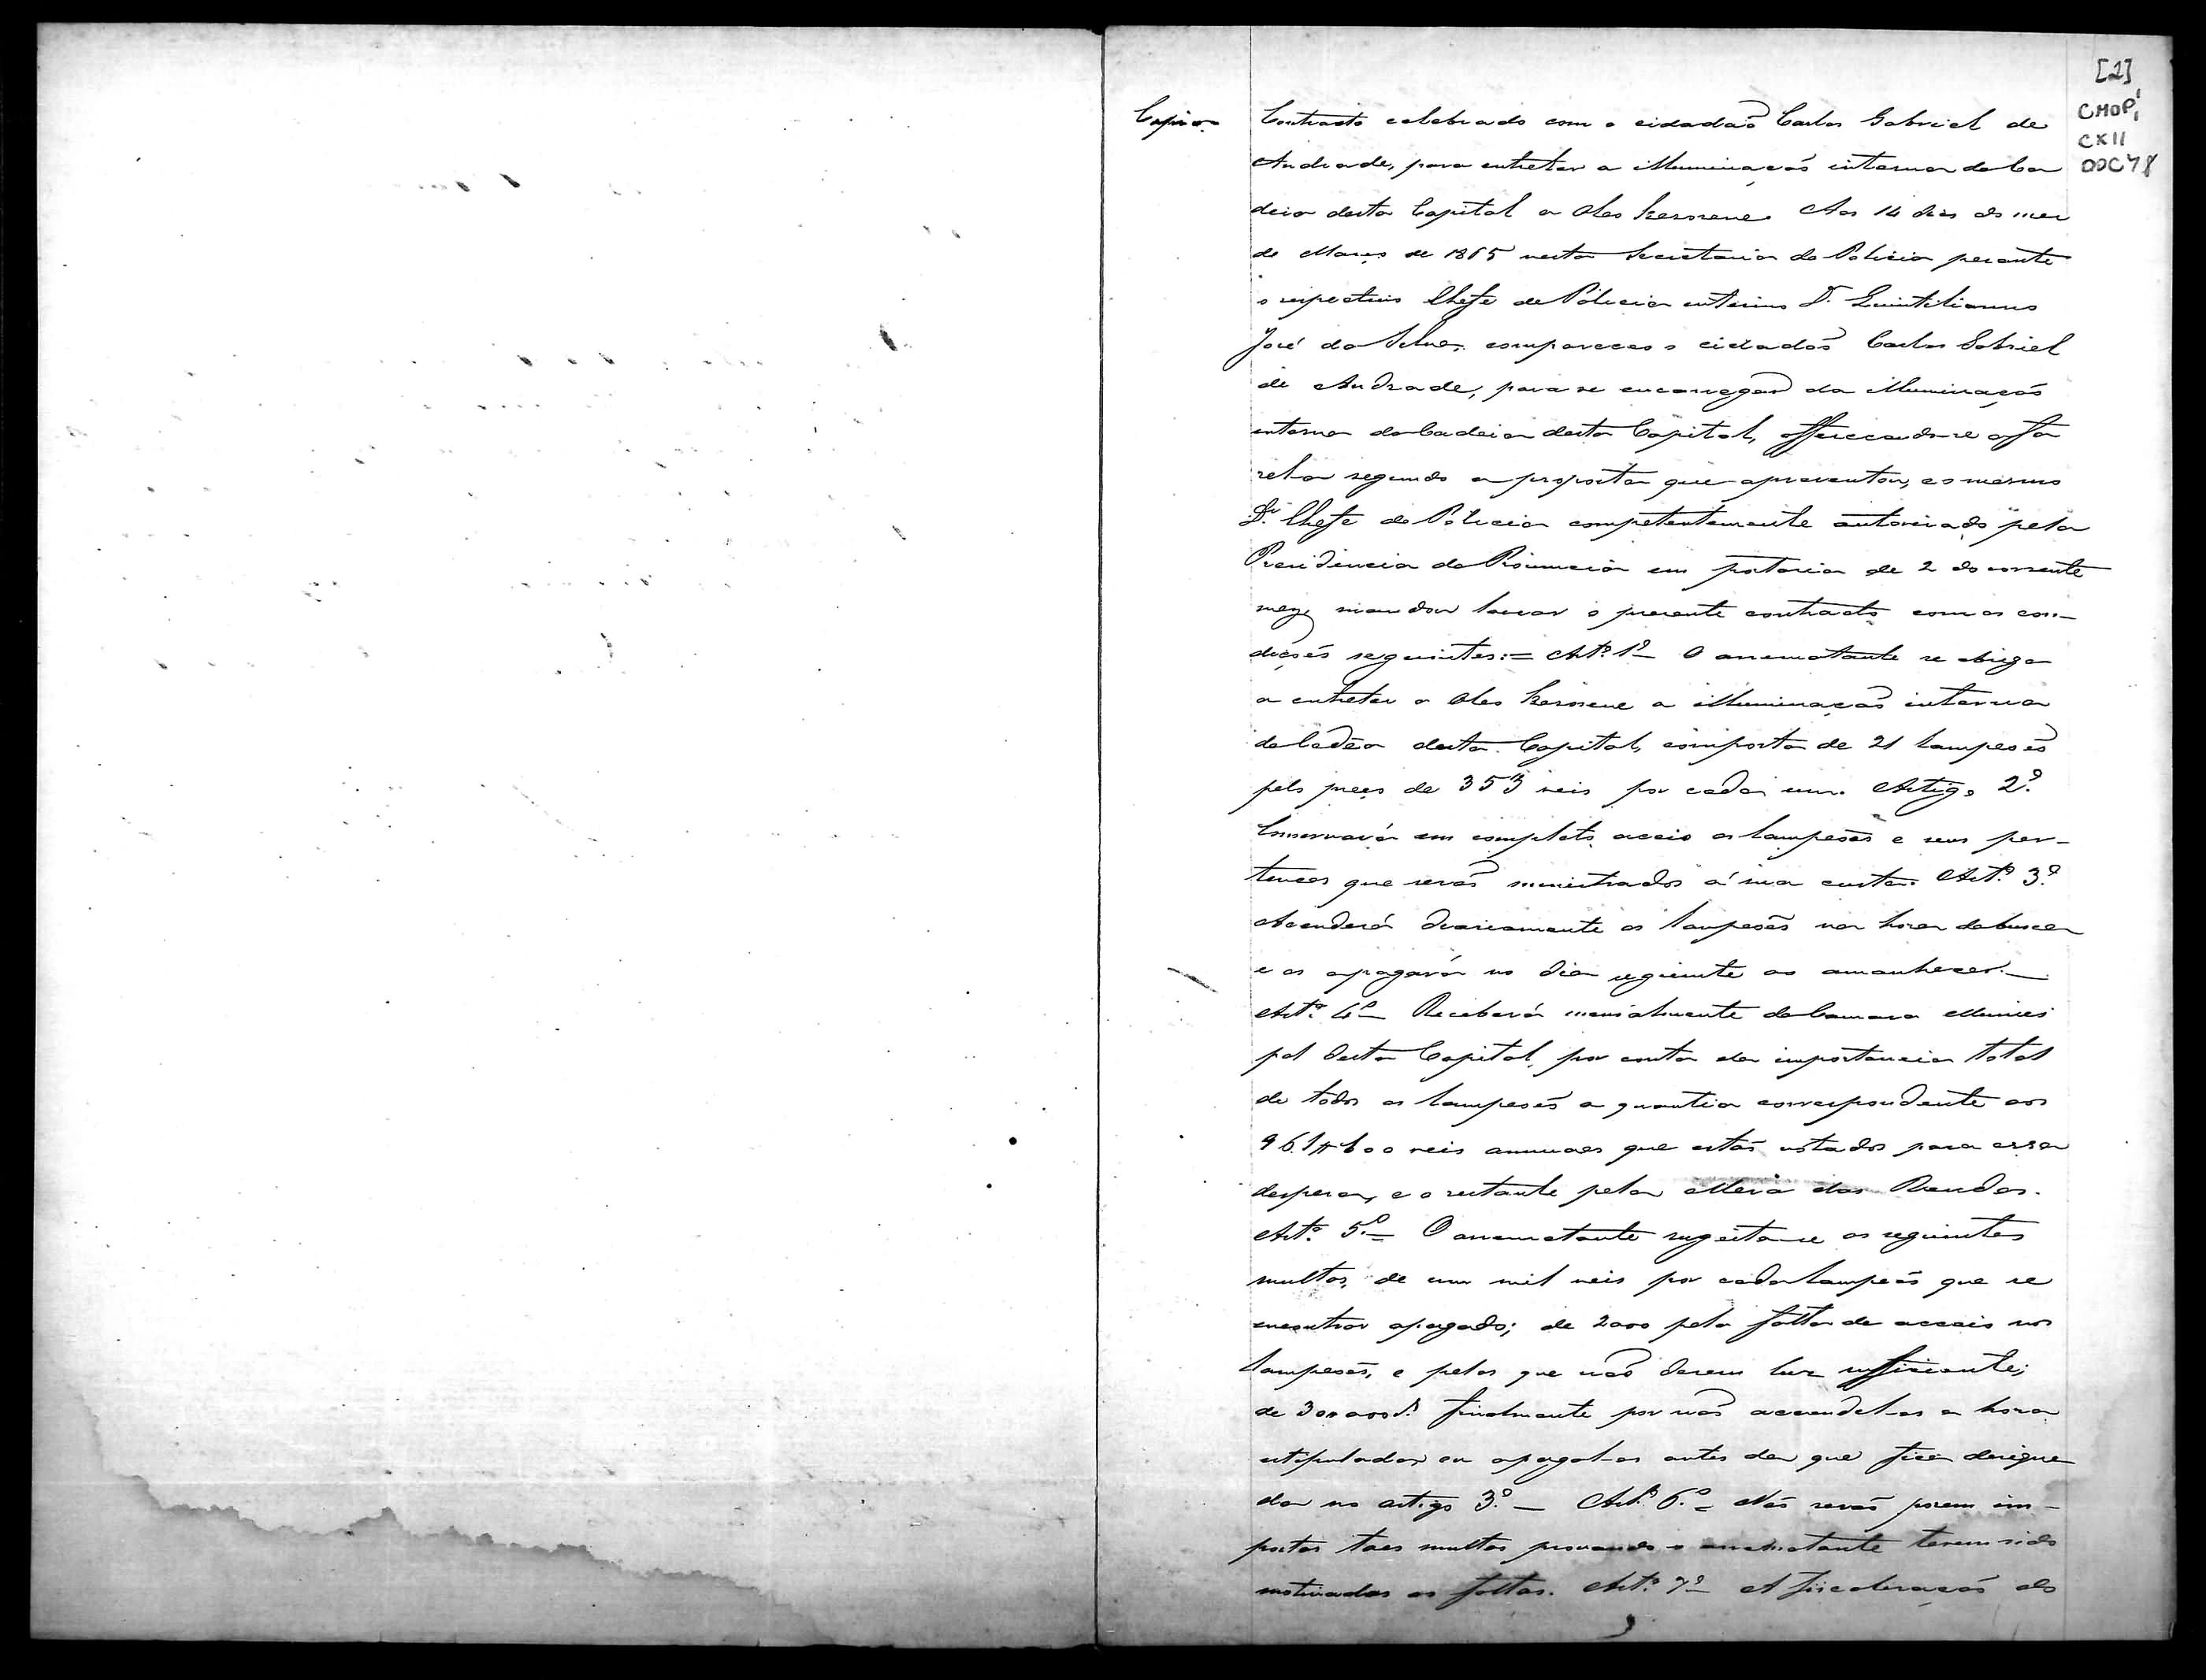 [1]
CMOP
CXII
DOC78
Copia
Contracto celebrado com o cidadaõ Carlos Gabriel de
Andrade, para entreter a illuminaçaõ interna da Ca
deia desta Capital a oleo kerosene. Aos 14 dias do mez
de Março de 1865 nesta Secretaria de Policia perante
o respectivo Chefe de Policia interino Dr. Quintilianno
José da Silva, compareceo o cidadaõ Carlos Gabriel
de Andrade, para se encarregar da illuminaçaõ
interna da Cadeia desta Capital, offerecendo-se a fa
zel-a segundo a proposta que apresentou, e o mesmo
Dr. Chefe de Policia competentemente autorisado pela
Presidencia da Provincia em portaria de 2 do corrente
mez, mandou lavrar o presente contracto com as con-
diçoẽs seguintes:= Artº. 1º- O arrematante se obriga
a entreter a oleo kerosene a illuminaçaõ interna
da Cadea desta Capital, composta de 21 lampeoẽs
pelo preço de 353 reis por cada um. Artigo 2º.
Conservará em completo aceio os lampeoẽs e seus per-
tences que seraõ ministrados á sua custa. Artº. 3º.
Accenderá diariamente os lampeoẽs na hora da busca
e os apagará no dia seguinte ao amanhecer.-
Artº. 4º- Receberá mensalmente da Camara Munici
pal desta Capital, por conta da importancia total
de todos os lampeoẽs a quantia correspondente aos
961#600 reis annuaes que estaõ votados para essa
despeza, e o restante pela Meza das Rendas.
Artº. 5º.= O arrematante sugeita-se as seguintes
multas, de um mil reis por cada lampeaõ que se
encontrar apagado; de 2000 pela falta de acceio nos
lampeoẽs, e pelos que naõ derem luz sufficiente;
de finalmente por naõ accendel-os a hora
estipulada, ou apagal-os antes da que fica designa
da no artigo 3º.- Artº. 6º.= Naõ seraõ porem im-
postas taes multas provando o arrematante terem sido
motivadas as faltas. Artº. 7º- A fiscalisaçaõ do